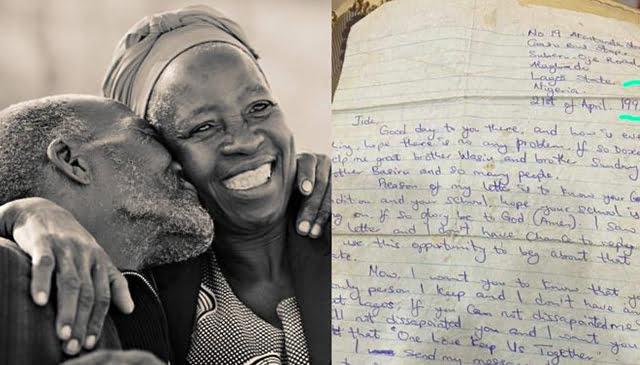 No 19
Suberu Oje Road
Alagbado
Lagos State
Nigeria.
21st of April. 199
Jide,
Good day to you there, and how is
hope there is no any problem. If so
me great brother Wasiu and brother Sunday
Basira and so many people.
Reason of my letter is to know your
and your school, hope your school is
on. If so glory be to God (Amen). I saw
letter and I don't have chance to reply
use this opportunity to beg about that
Now, I want you to know that
only person I keep and I don't have
Lagos. If you can not dissapointed me
not dissapointed you and I want you
that "One Love Keep Us Together."
I send my message